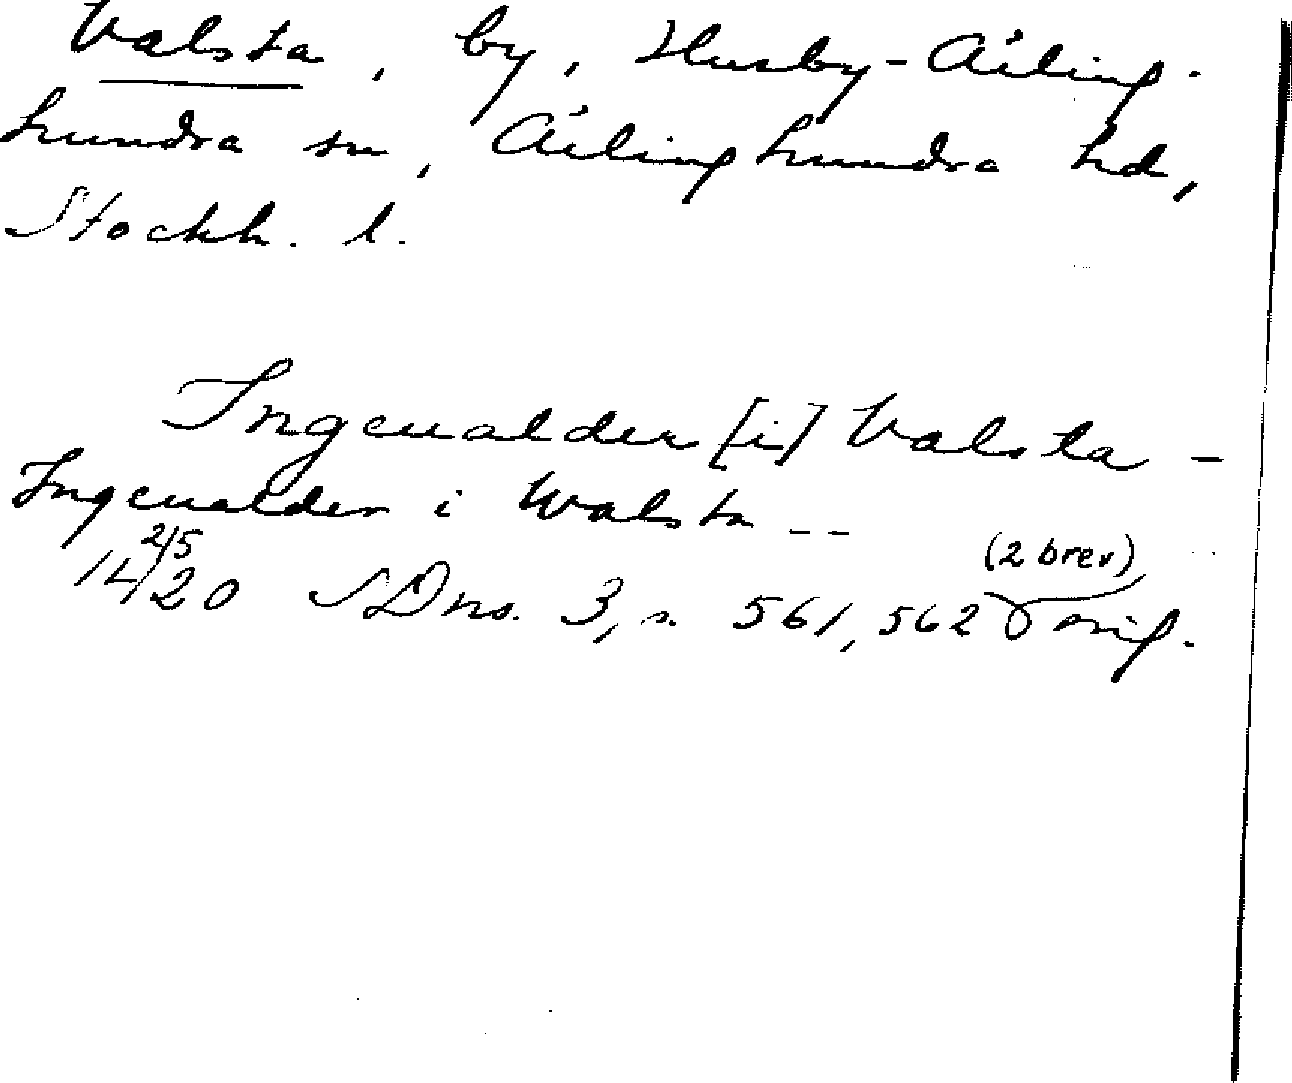 Valsta, by, Husby-Ärling-
hundra sn, Ärlinghundra hd,
Stockh. l.
Ingeualder [i] Valsta -
Ingeualder i Walsta --
(2 brev)
14 2/5 20 SDns. 3, s. 561, 562 orig.